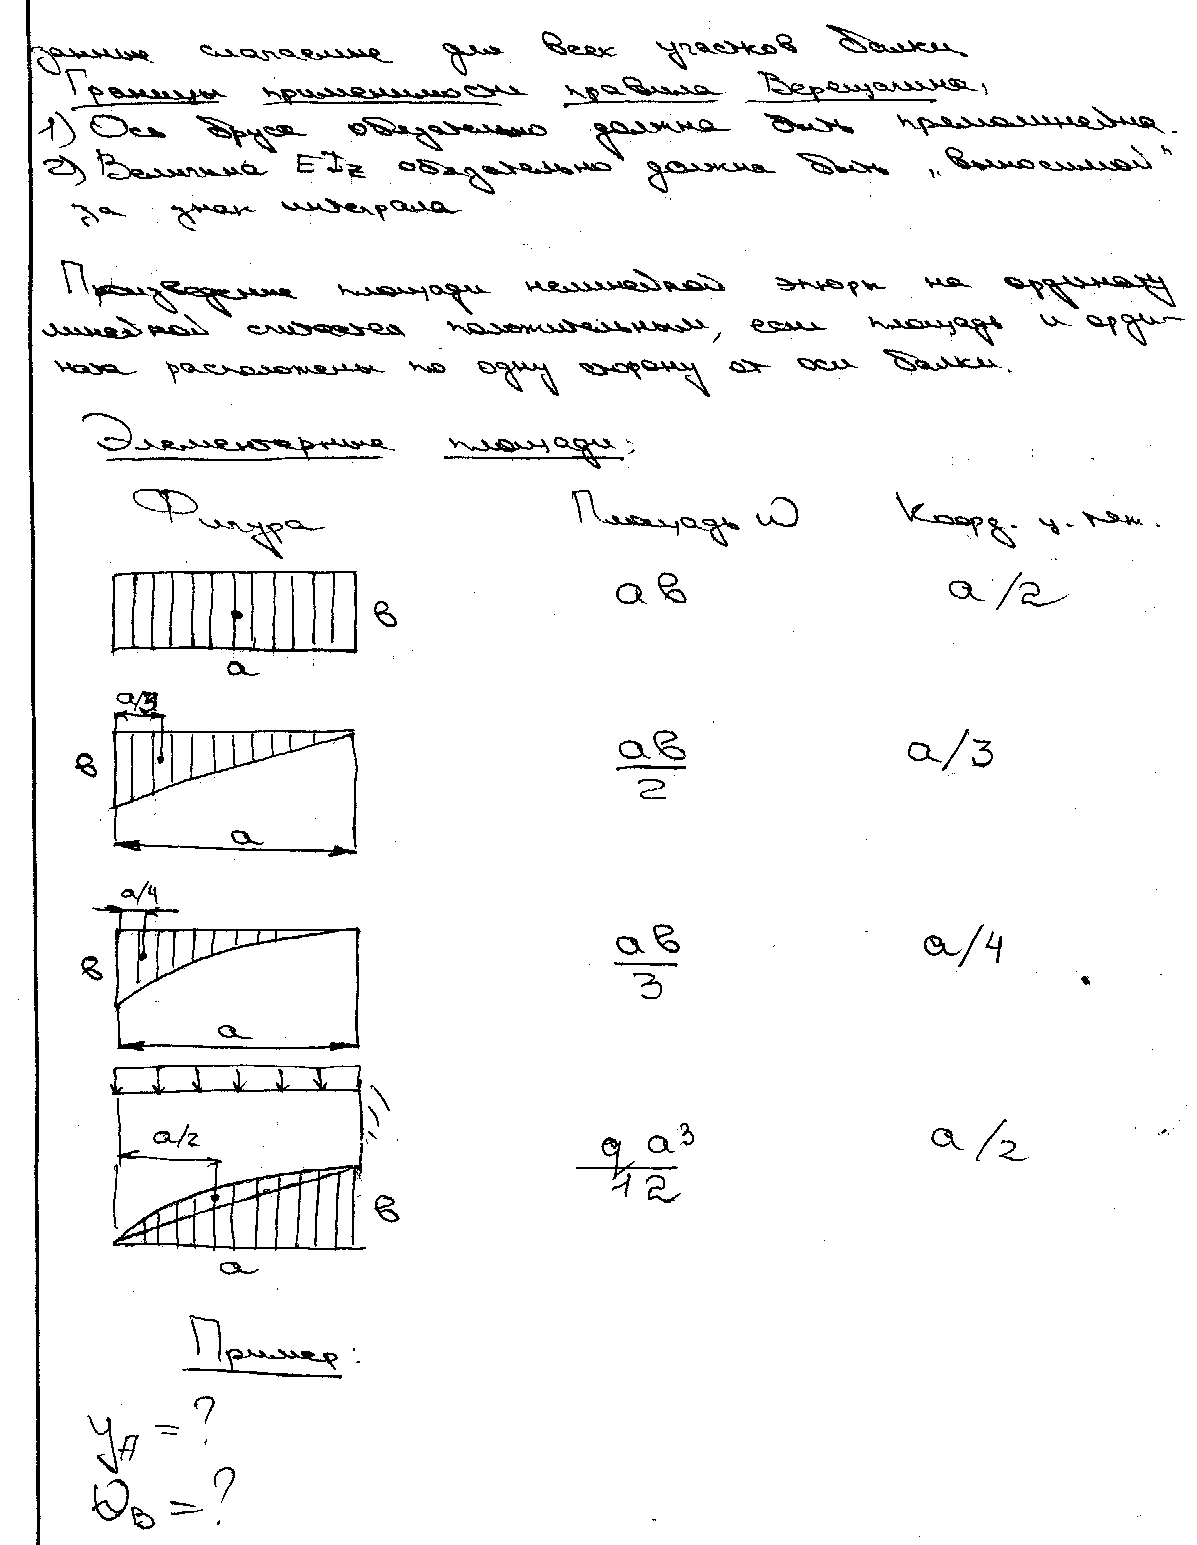 данные слагаемые для всех участков балки
Границы применимости правила Верещагина:
1) Ось бруса обязательно должна быть прямолинейна.
2) Величина EIz обязательно должна быть „выносимой"
за знак интеграла
Произведение площади нелинейной эпюры на ординату
линейной считается положительным, если площадь и орди-
ната расположены по одну сторону от оси балки.
Элементарные площади:
Фигура Площадь ω Коорд. ц. тяж.
в ав а/2
а
а/3
в ав/2 а/3
а
а/4
в ав/3 а/4
а
а/2
q a³/12 а/2
в
а
Пример:
yA = ?
θB = ?